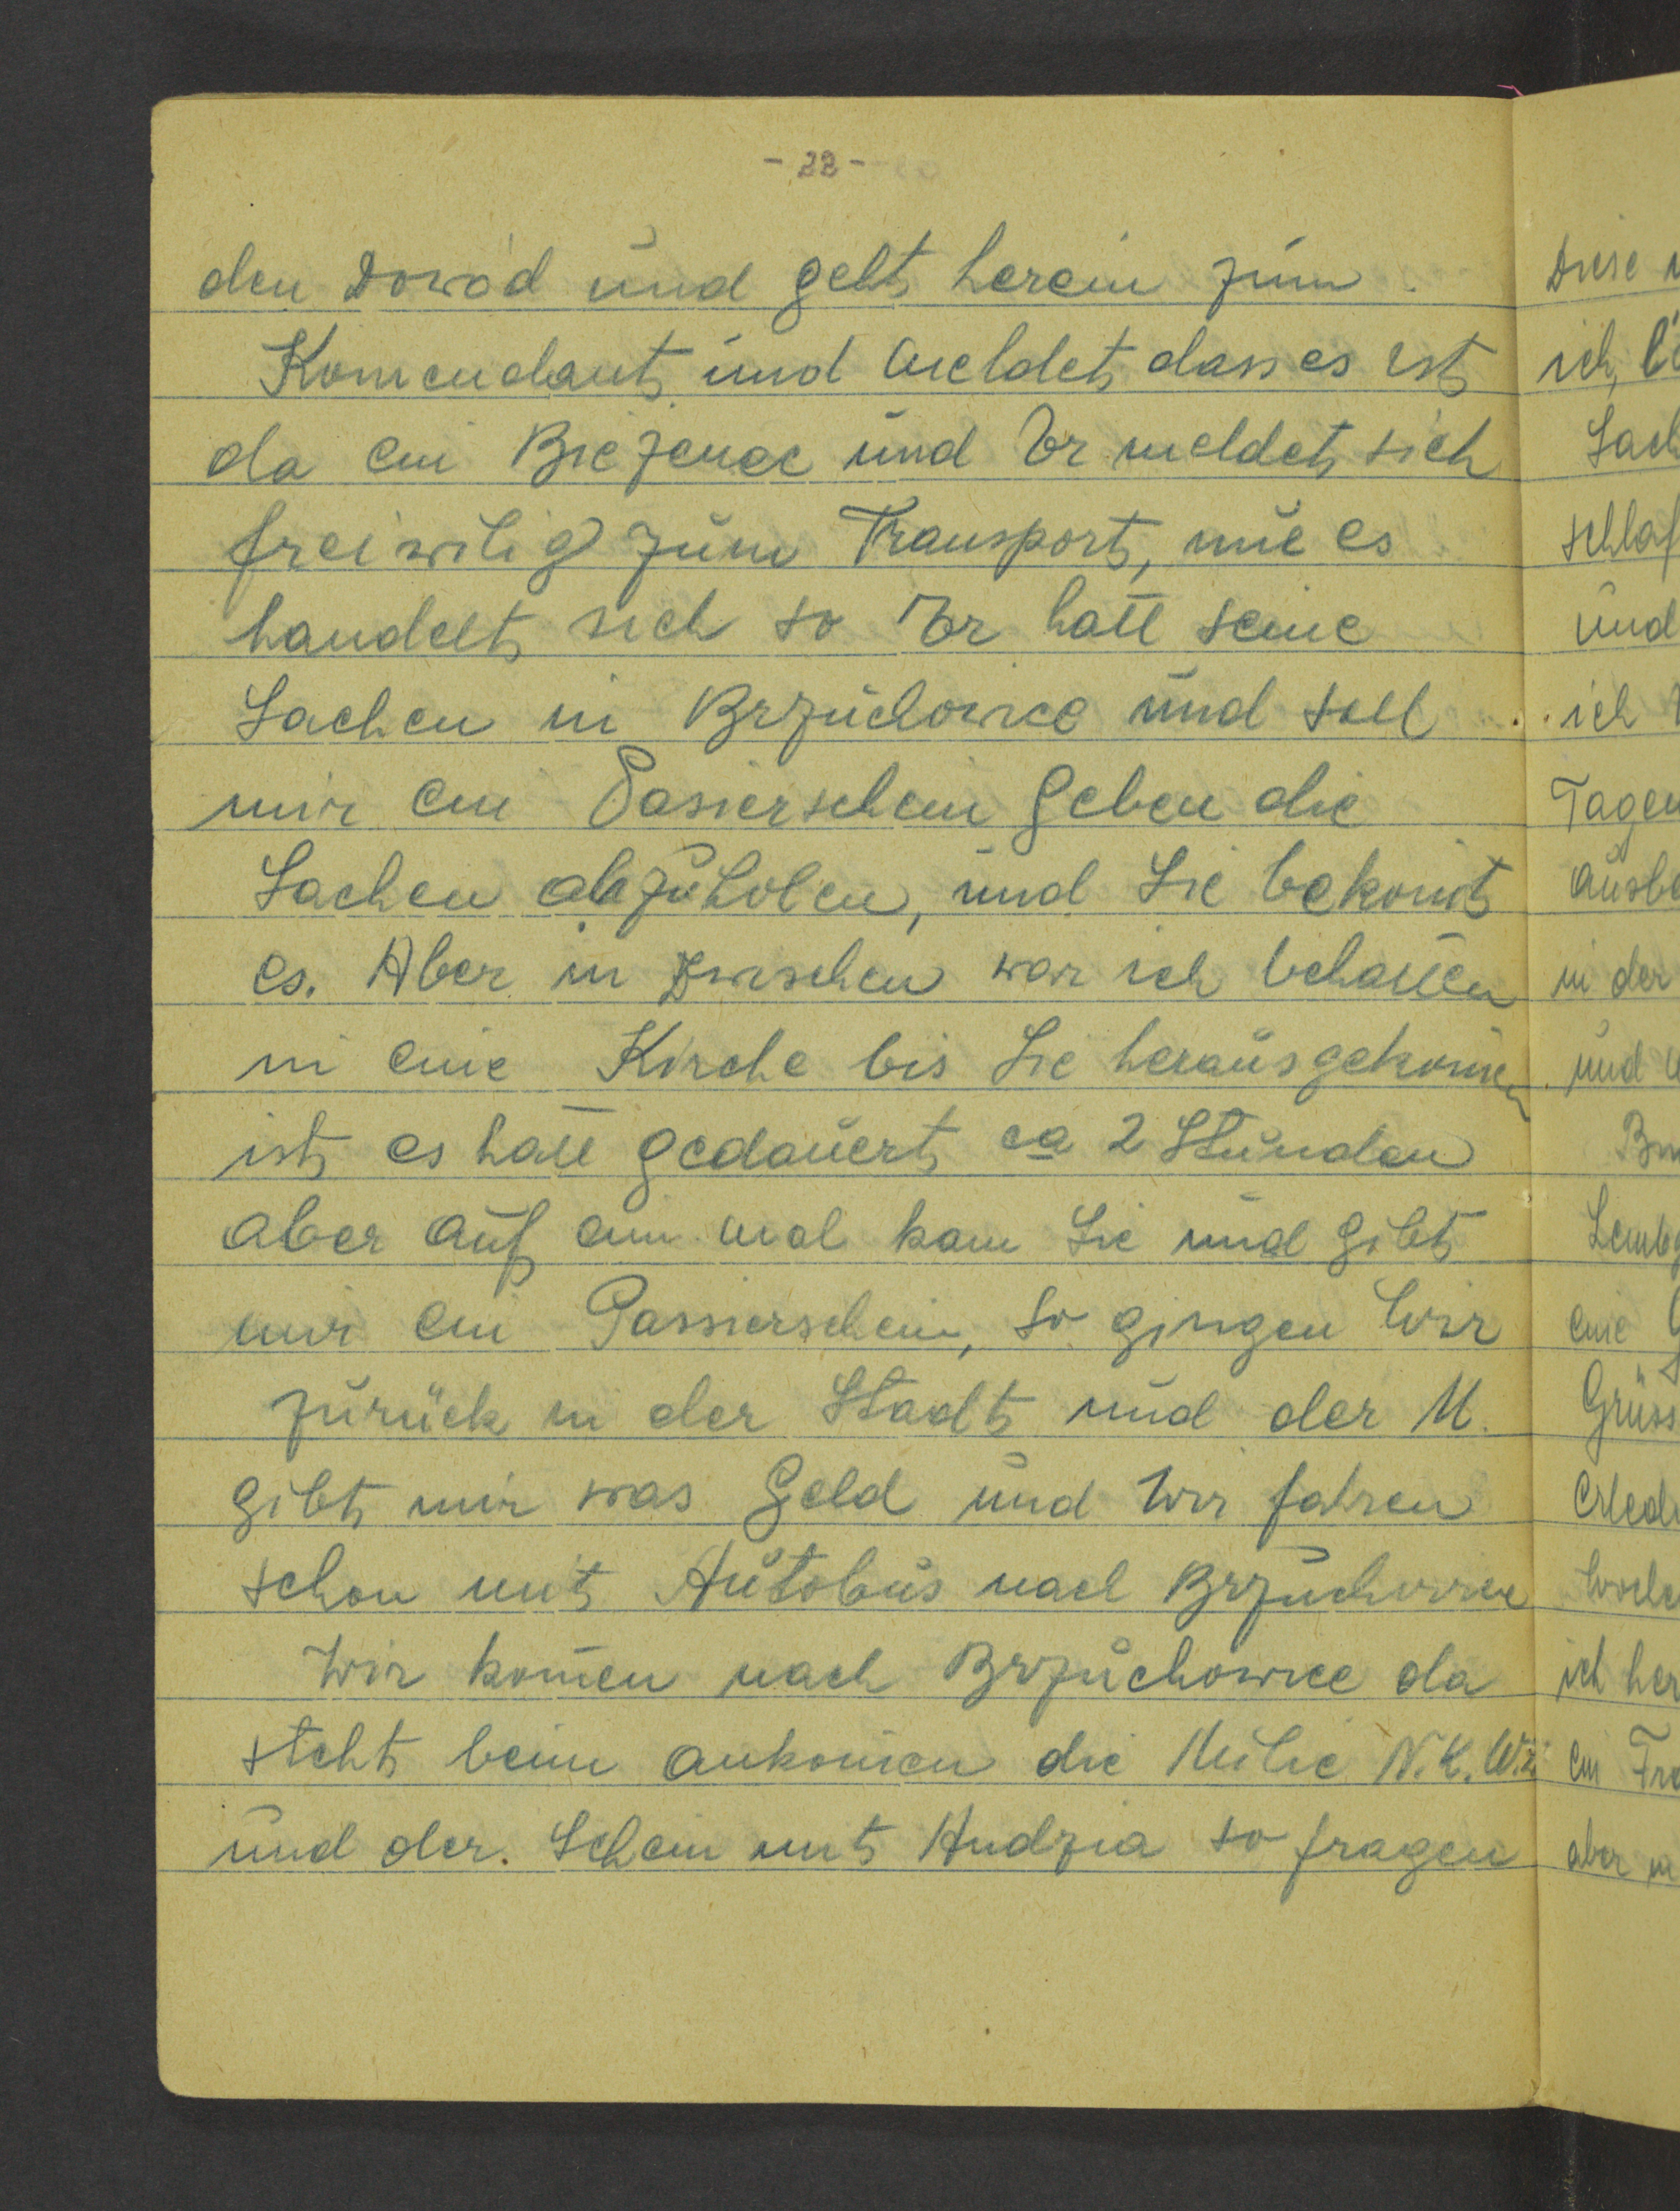 - 22 -
den Dowód und geht herein zum
Komendant und meldet dass es ist
da ein Biezenec und Er meldet sich
freiwilig zum Transport, nur es
handelt sich so Er hatt seine
Sachen in Brzuchowice und soll
mir ein Pasierschein geben die
Sachen abzuholen, und Sie bekomt
es. Aber in zwischen war ich behalten
in eine Kirche bis Sie herausgekomen
ist es hatt gedauert ca 2 Stunden
aber auf ein mal kam Sie und gibt
mir ein Passierschein, so gingen Wir
zurück in der Stadt und der M.
gibt mir was Geld und Wir fahren
schon mit Autobus nach Brzuchowice
Wir komen nach Brzuchowice da
steht beim ankomen die Milie N.K.W.
und der. Schein mit Hudzia so fragen
Diese
ich,
Sach
schlaf
und
ich
Tagen
ausbe
in der
und
Lemb
eine
Grüss
erledi
Woche
ich her
ein Fra
aber